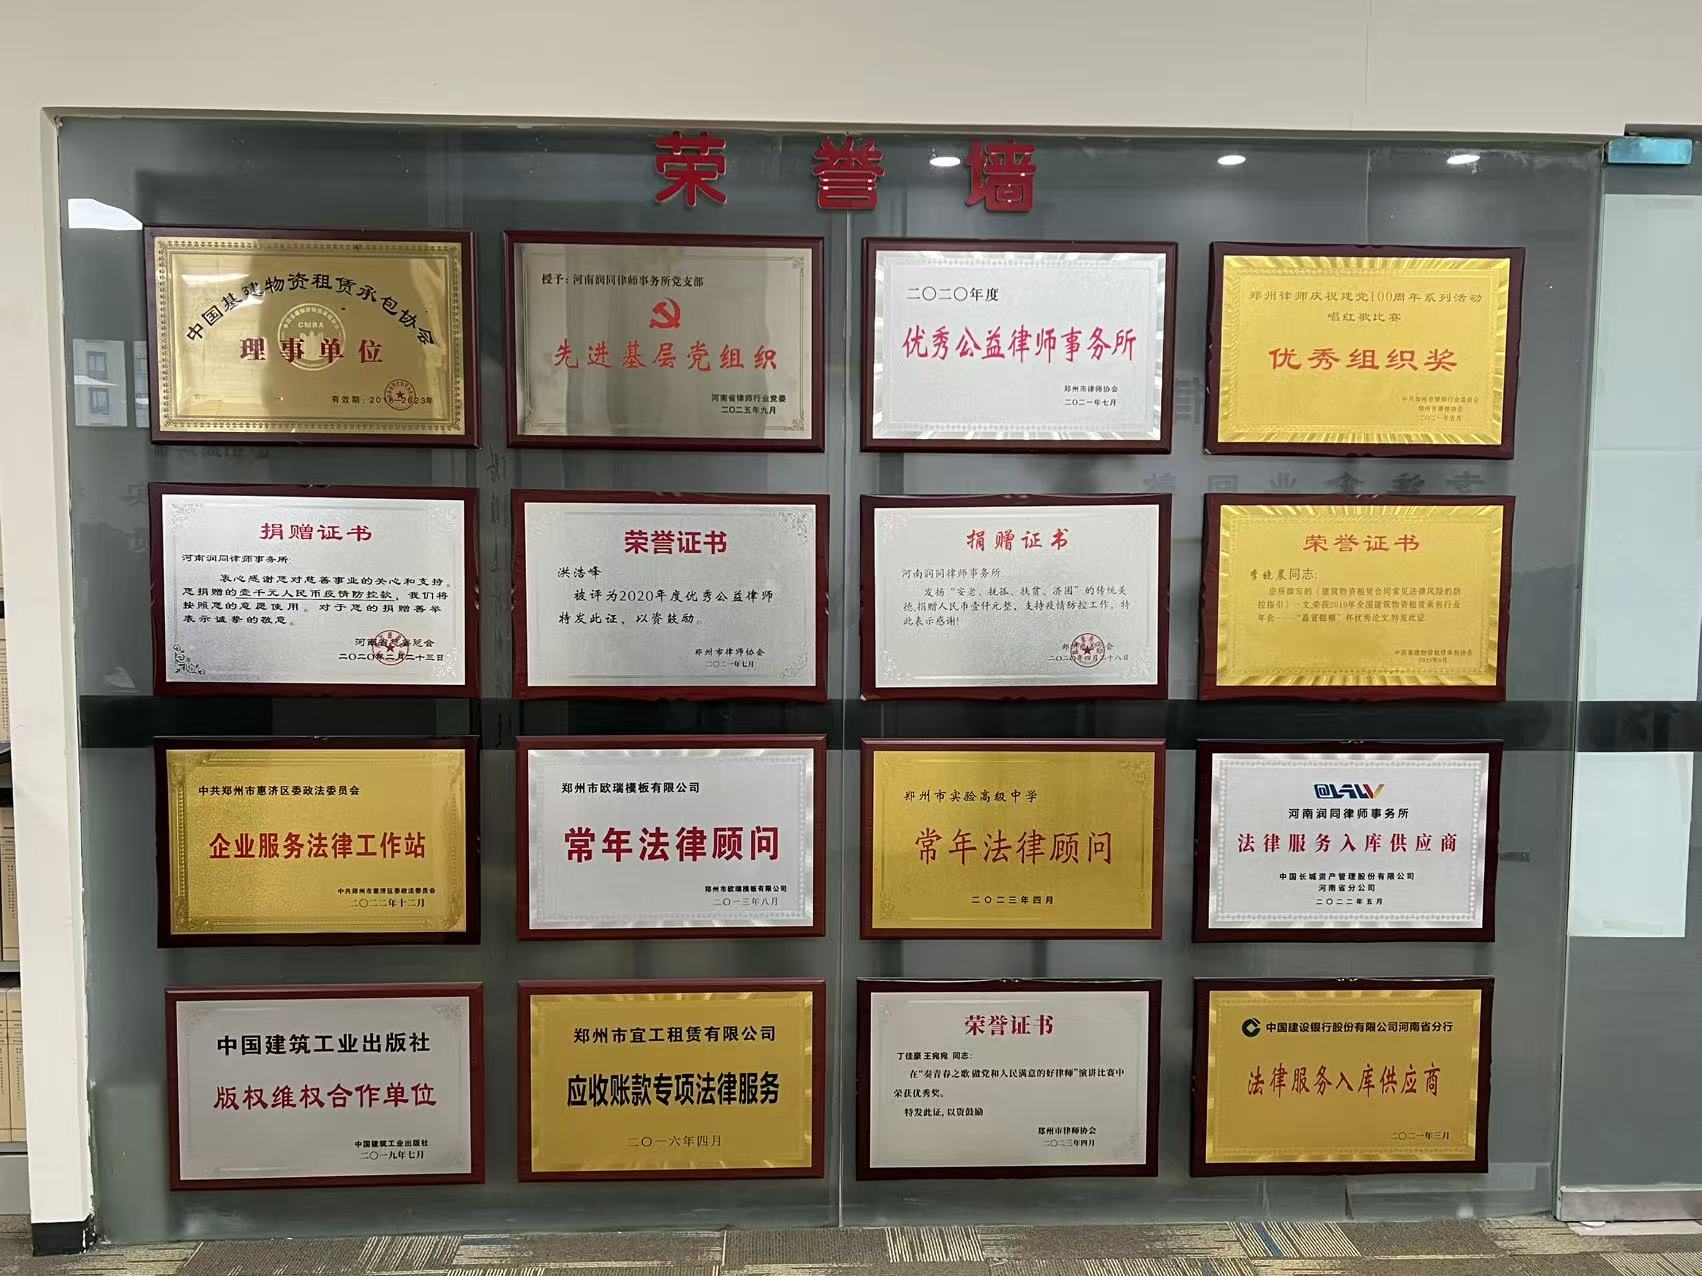 荣誉墙
中国基建物资租赁承包协会
CMRA
理事单位
有效期：2018-2023年
授予：河南润同律师事务所党支部
先进基层党组织
河南省律师行业党委
二〇二五年九月
二〇二〇年度
优秀公益律师事务所
郑州市律师协会
二〇二一年七月
郑州律师庆祝建党100周年系列活动
唱红歌比赛
优秀组织奖
中共郑州市律师行业委员会
郑州市律师协会
二〇二一年五月
捐赠证书
河南润同律师事务所：
衷心感谢您对慈善事业的关心和支持。
您捐赠的壹千元人民币疫情防控款，我们将
按照您的意愿使用。对于您的捐赠善举
表示诚挚的敬意。
河南省慈善总会
二〇二〇年二月二十三日
荣誉证书
洪浩峰
被评为2020年度优秀公益律师
特发此证，以资鼓励。
郑州市律师协会
二〇二一年七月
捐赠证书
河南润同律师事务所：
发扬“安老、抚孤、扶贫、济困”的传统美
德,捐赠人民币壹仟元整，支持疫情防控工作，特
此表示感谢!
二〇二〇年四月二十八日
荣誉证书
李晓晨同志：
您所撰写的《建筑物资租赁合同常见法律风险的防
控指引》一文,荣获2019年全国建筑物资租赁承包行业
年会——“昌宜铝模”杯优秀论文,特发此证。
中国基建物资租赁承包协会
2019年9月
中共郑州市惠济区委政法委员会
企业服务法律工作站
中共郑州市惠济区委政法委员会
二〇二二年十二月
郑州市欧瑞模板有限公司
常年法律顾问
郑州市欧瑞模板有限公司
二〇一三年八月
郑州市实验高级中学
常年法律顾问
二〇二三年四月
河南润同律师事务所
法律服务入库供应商
中国长城资产管理股份有限公司
河南省分公司
二〇二二年五月
中国建筑工业出版社
版权维权合作单位
中国建筑工业出版社
二〇一九年七月
郑州市宜工租赁有限公司
应收账款专项法律服务
二〇一六年四月
荣誉证书
丁佳豪 王宛宛 同志：
在“奏青春之歌 做党和人民满意的好律师”演讲比赛中
荣获优秀奖。
特发此证，以资鼓励
郑州市律师协会
二〇二三年四月
中国建设银行股份有限公司河南省分行
法律服务入库供应商
二〇二一年三月